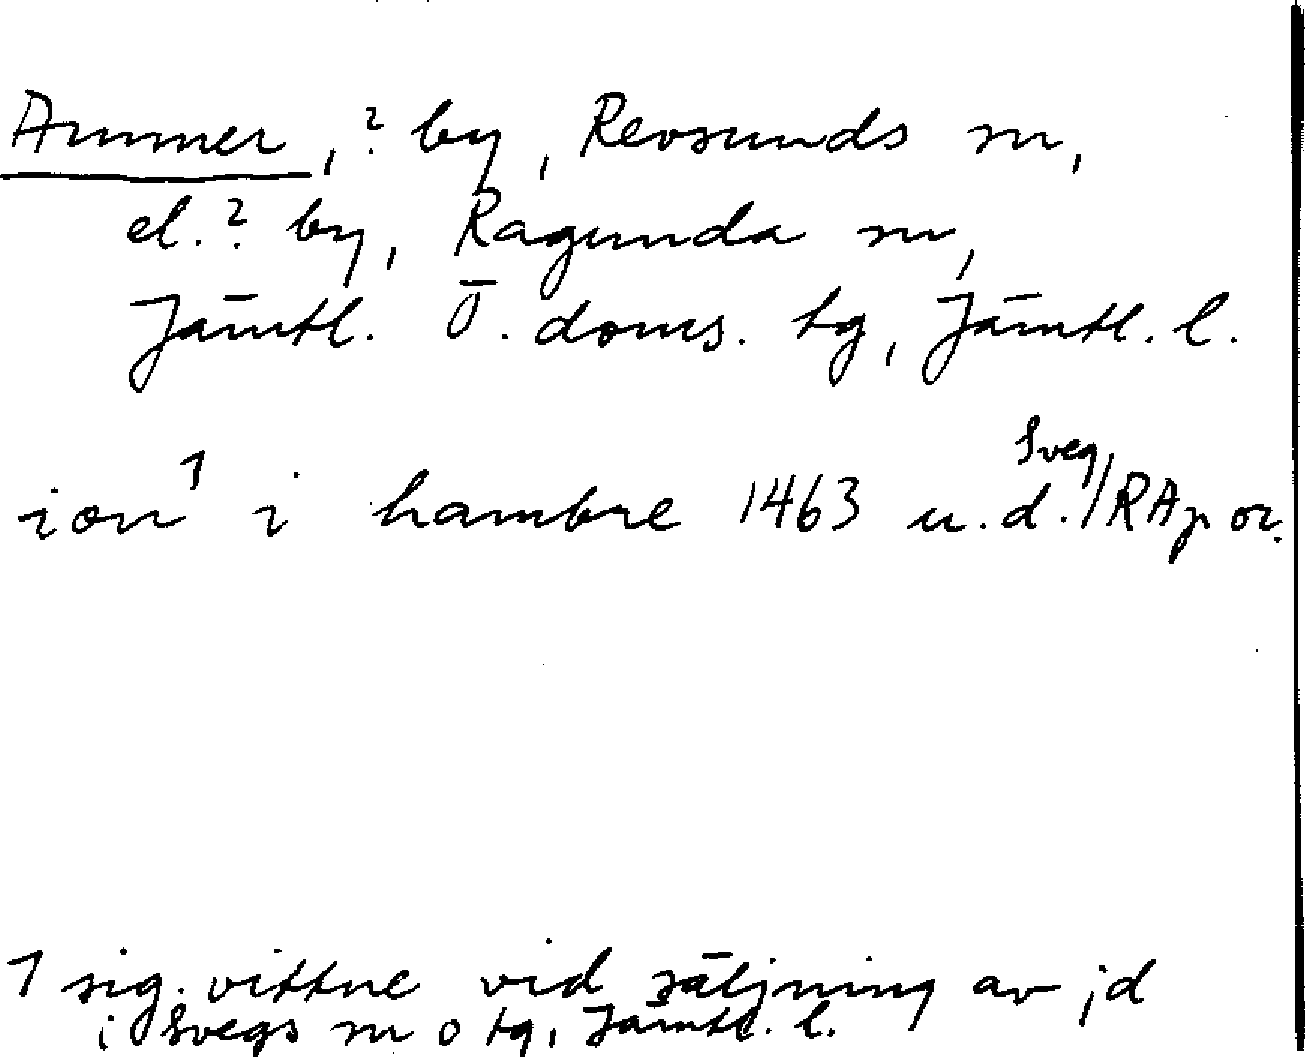 Ammer, ? by, Revsunds sn,
el. ? by, Ragunda sn,
Jämtl. Ö. doms. tg, Jämtl. l.
ion¹ i hambre 1463 u.d. Sveg/RAp or.
1 sig. vittne vid säljning av jd
i Svegs sn o tg, Jämtl. l.